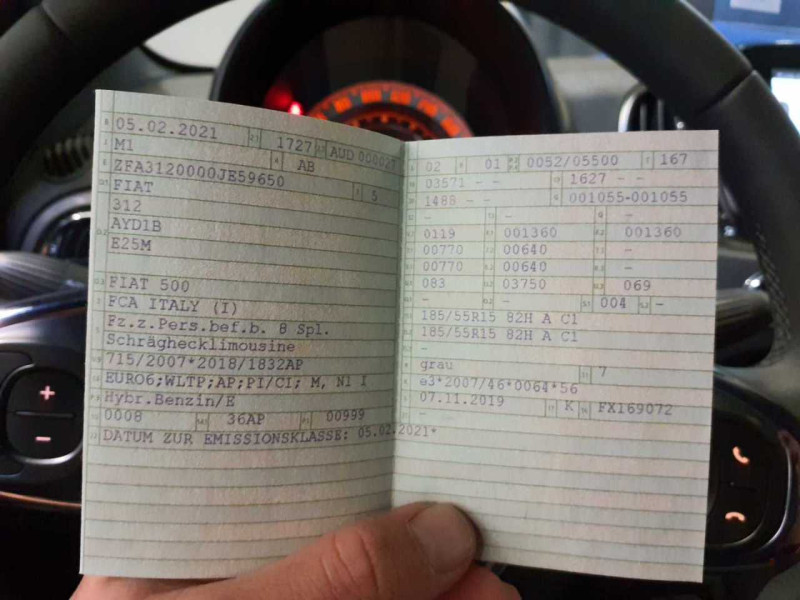 05.02.2021 1727 AUD 000027
M1 AB
ZFA3120000JE59650 5
FIAT
312
AYD1B
E25M
FIAT 500
FCA ITALY (I)
Fz.z.Pers.bef.b. 8 Spl.
Schräghecklimousine
715/2007*2018/1832AP
EURO6;WLTP;AP;PI/CI; M, N1 I
Hybr.Benzin/E
0008 36AP 00999
DATUM ZUR EMISSIONSKLASSE: 05.02.2021*
02 01 0052/05500 167
03571 - - 1627 - -
1488 - - 001055-001055
- - -
0119 001360 001360
00770 00640 -
00770 00640 -
083 03750 069
- - 004 -
185/55R15 82H A C1
185/55R15 82H A C1
-
grau 7
e3*2007/46*0064*56
07.11.2019 K FX169072
-